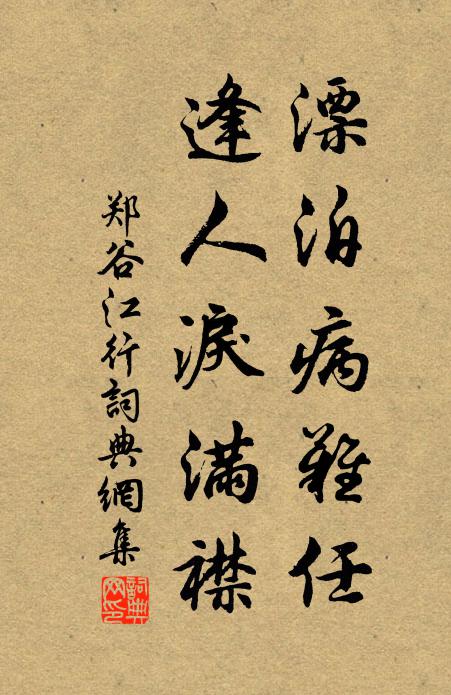 漂泊病難任
逢人淚滿襟
郑谷江行詞典網集
詞典网印